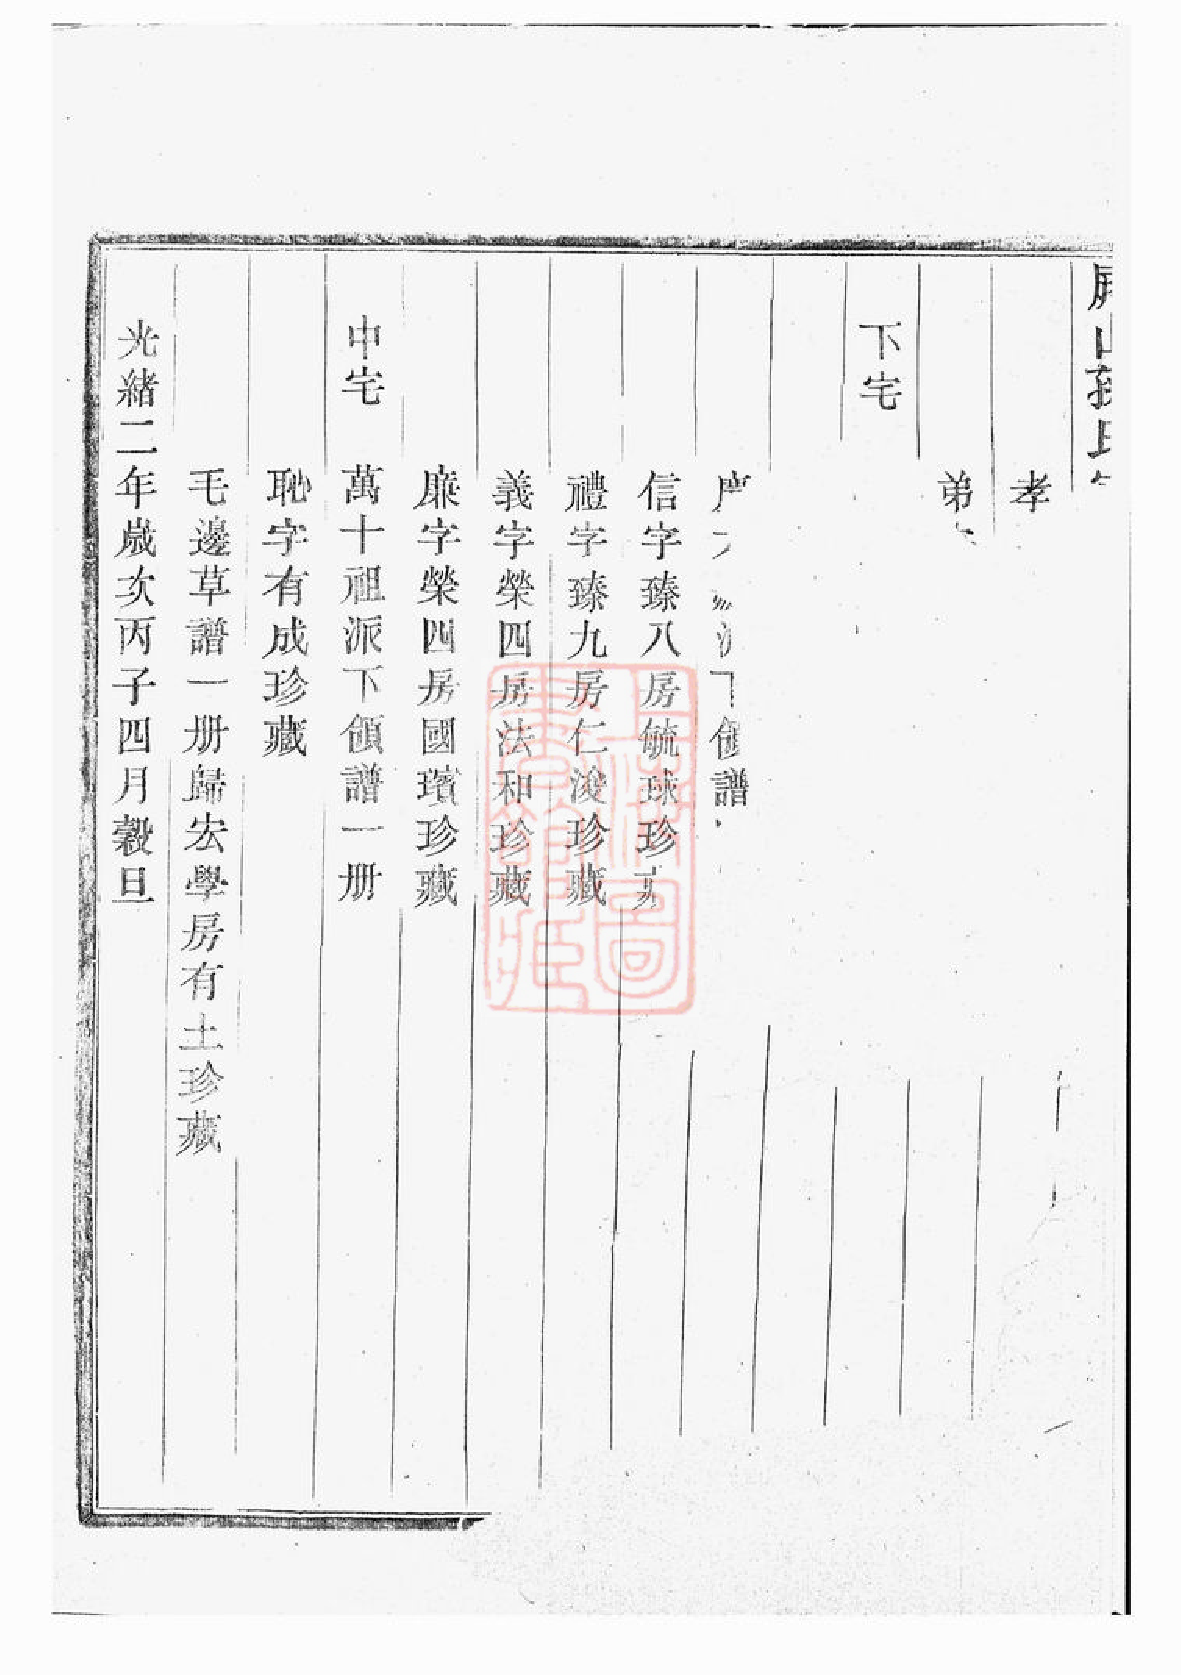 孫氏
孝
弟
下宅
下領譜
信字臻八房毓球珍
禮字臻九房仁浚珍藏
義字榮四房法和珍藏
廉字榮四房國璸珍藏
中宅 萬十祖派下領譜一册
恥字有成珍藏
毛邊草譜一册歸宏學房有土珍藏
光緒二年歲次丙子四月穀旦
上海圖書館藏